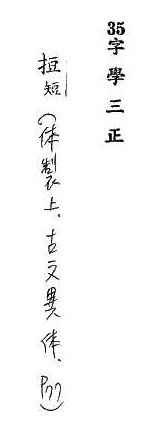 35字學三正
挋
短(体製上.古文異体.P77)